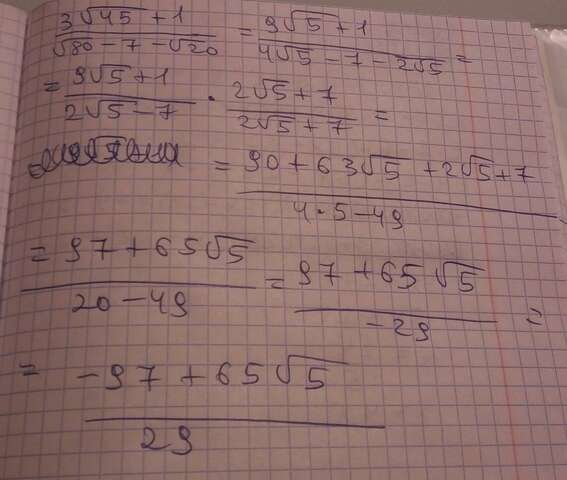 (3√45 + 1)/(√80 - 7 - √20) = (9√5 + 1)/(4√5 - 7 - 2√5) =
= (9√5 + 1)/(2√5 - 7) · (2√5 + 7)/(2√5 + 7) =
= (90 + 63√5 + 2√5 + 7)/(4·5 - 49)
= (97 + 65√5)/(20 - 49) = (97 + 65√5)/(-29) =
= (-97 + 65√5)/29